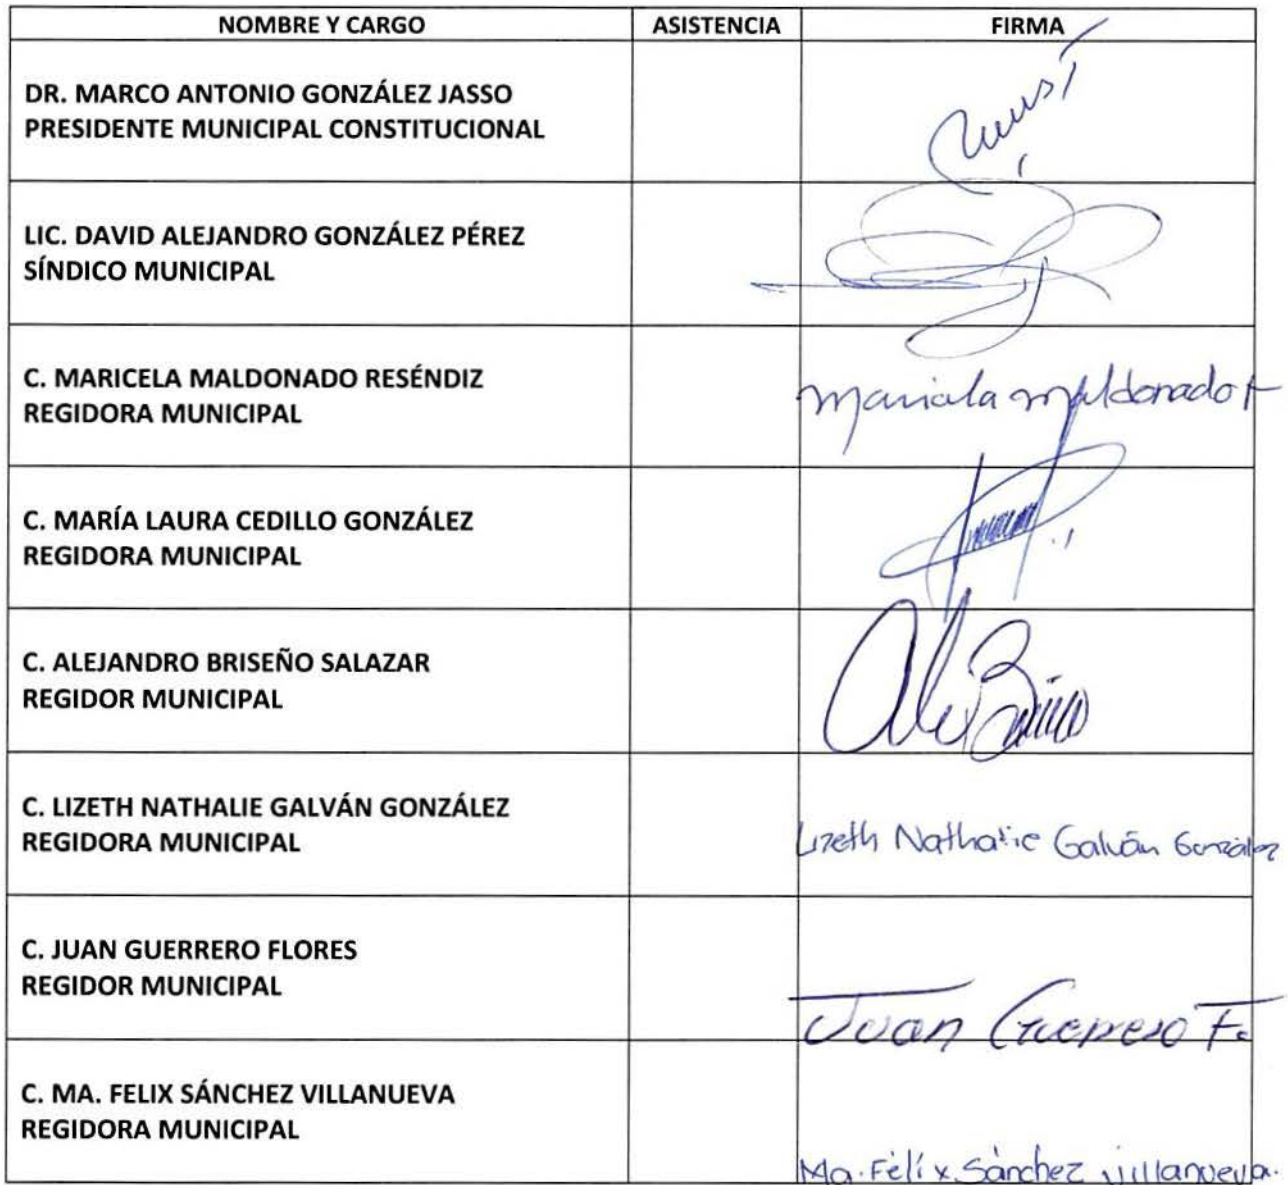 NOMBRE Y CARGO ASISTENCIA FIRMA
DR. MARCO ANTONIO GONZÁLEZ JASSO
PRESIDENTE MUNICIPAL CONSTITUCIONAL
LIC. DAVID ALEJANDRO GONZÁLEZ PÉREZ
SÍNDICO MUNICIPAL
C. MARICELA MALDONADO RESÉNDIZ
REGIDORA MUNICIPAL
Maricela Maldonado R
C. MARÍA LAURA CEDILLO GONZÁLEZ
REGIDORA MUNICIPAL
C. ALEJANDRO BRISEÑO SALAZAR
REGIDOR MUNICIPAL
C. LIZETH NATHALIE GALVÁN GONZÁLEZ
REGIDORA MUNICIPAL
Lizeth Nathalie Galván González
C. JUAN GUERRERO FLORES
REGIDOR MUNICIPAL
Juan Guerrero F.
C. MA. FELIX SÁNCHEZ VILLANUEVA
REGIDORA MUNICIPAL
Ma. Félix Sánchez Villanueva.